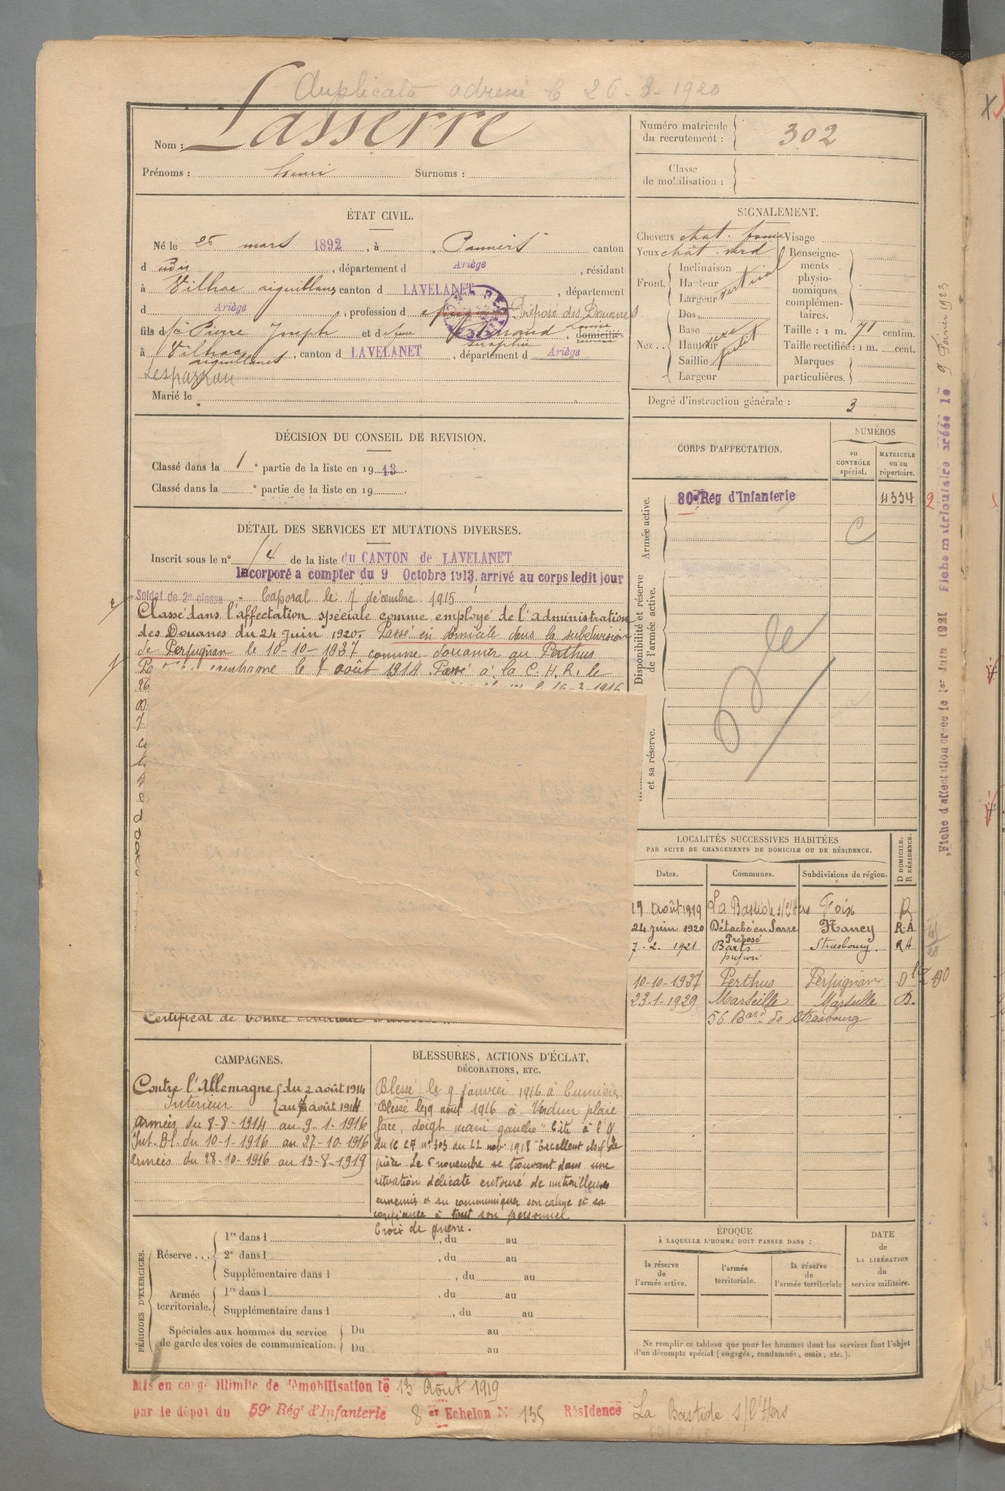 Duplicata adressé le 26-3-1920
Nom : Lasserre
Prénoms : Henri Surnoms :
ÉTAT CIVIL.
Né le 25 mars 1892, à Pamiers canton
d dudit, département d Ariège, résidant
à Vilhac aiguillanes canton d LAVELANET, département
d Ariège, profession d Préposé des Douanes
fils de Pierre Joseph et de feue Séraphie domiciliés
à Vilhac aiguillanes, canton d LAVELANET, département d Ariège
Marié le
DÉCISION DU CONSEIL DE REVISION.
Classé dans la 1e partie de la liste en 1913.
Classé dans la e partie de la liste en 19 .
DÉTAIL DES SERVICES ET MUTATIONS DIVERSES.
Inscrit sous le n° 14 de la liste du CANTON de LAVELANET
Incorporé a compter du 9 Octobre 1913, arrivé au corps ledit jour
Soldat de 2e classe - Caporal le 7 décembre 1915
Classé dans l'affectation spéciale comme employé de l'administration
des Douanes du 24 Juin 1920. Passé en domicile dans la subdivision
de Perpignan le 10-10-1937 comme douanier au Perthus
le 7 août 1914 Passé à la C.H.R. le
Certificat de bonne conduite
Numéro matricule du recrutement : 302
Classe de mobilisation :
SIGNALEMENT.
Cheveux chat. foncé Visage
Yeux chât. verd
Front. Inclinaison vertical
Hauteur
Largeur
Nez. Dos
Base
Hauteur
Saillie
Largeur
Renseignements physionomiques complémentaires.
Taille : 1 m. 71 centim.
Taille rectifiée : 1 m. cent.
Marques particulières.
Degré d'instruction générale : 3
CORPS D'AFFECTATION.
NUMÉROS
au CONTRÔLE spécial.
MATRICULE ou au répertoire.
Armée active.
80e Rég d'Infanterie 4334
Disponibilité et réserve de l'armée active.
et sa réserve.
LOCALITÉS SUCCESSIVES HABITÉES
PAR SUITE DE CHANGEMENTS DE DOMICILE OU DE RÉSIDENCE.
Dates. Communes. Subdivisions de région. D DOMICILE. R RÉSIDENCE.
19 août 1919 La Bastide s/l'Hers Foix R
24 juin 1920 Détaché en Sarre Nancy R.A.
7. 2. 1921 Préposé Strasbourg R A
10-10-1937 Perthus Perpignan D
23-1-1939 Marseille Marseille D.
56 Bard de Strasbourg
Fiche d'affectation créée le 1er Juin 1921 Fiche matriculaire créée le 9 Février 1923
CAMPAGNES.
Contre l'Allemagne du 2 août 1914
Intérieur au 7 août 1914
Armées du 8-8-1914 au 9-1-1916
Int. Bl. du 10-1-1916 au 27-10-1916
Armées du 28-10-1916 au 13-8-1919
BLESSURES, ACTIONS D'ÉCLAT,
DÉCORATIONS, ETC.
Blessé le 9 janvier 1916 à
Blessé le 9 août 1916 à Verdun plaie
face, doigt main gauche. Cité à l'O
du 16e n° 303 du 22 nov 1918 "Excellent chef de
pièce. Le 5 novembre se trouvant dans une
situation délicate entouré de mitrailleuses
ennemies a su communiquer son calme et sa
confiance à tout son personnel
Croix de guerre.
PÉRIODES D'EXERCICES.
Réserve... 1re dans l , du au
2e dans l , du au
Supplémentaire dans l , du au
Armée territoriale. 1re dans l , du au
Supplémentaire dans l , du au
Spéciales aux hommes du service Du au
de garde des voies de communication. Du au
ÉPOQUE
À LAQUELLE L'HOMME DOIT PASSER DANS :
la réserve de l'armée active.
l'armée territoriale.
la réserve de l'armée territoriale
DATE de LA LIBÉRATION du service militaire.
Ne remplir ce tableau que pour les hommes dont les services font l'objet
d'un décompte spécial (engagés, condamnés, omis, etc.).
Mis en congé illimité de démobilisation le 13 Août 1919
par le dépôt du 59e Rég d'Infanterie 8e Echelon N° 155 Résidence La Bastide s/l'Hers